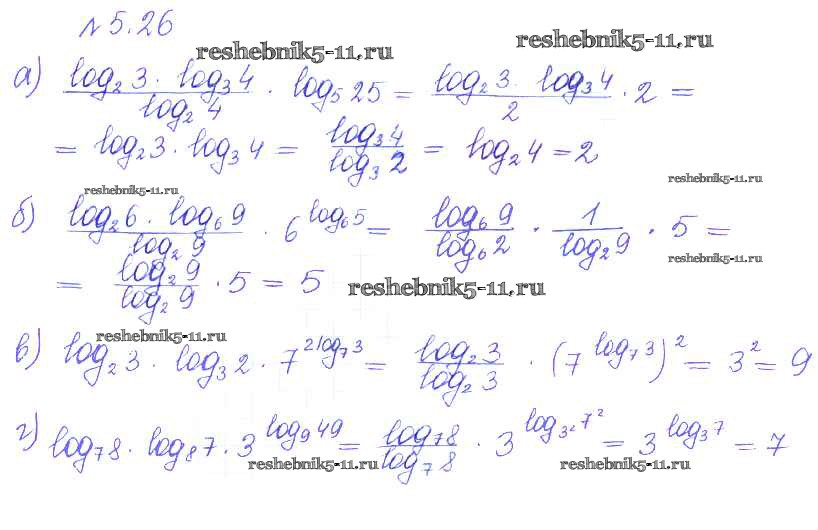 № 5.26
reshebnik5-11.ru reshebnik5-11.ru
а) \frac{log₂3 · log₃4}{log₂4} · log₅25 = \frac{log₂3 · log₃4}{2} · 2 =
= log₂3 · log₃4 = \frac{log₃4}{log₃2} = log₂4 = 2
reshebnik5-11.ru reshebnik5-11.ru
б) \frac{log₂6 · log₆9}{log₂9} · 6^{log₆5} = \frac{log₆9}{log₆2} · \frac{1}{log₂9} · 5 =
reshebnik5-11.ru
= \frac{log₂9}{log₂9} · 5 = 5 reshebnik5-11.ru
reshebnik5-11.ru
в) log₂3 · log₃2 · 7^{2log₇3} = \frac{log₂3}{log₂3} · (7^{log₇3})² = 3² = 9
г) log₇8 · log₈7 · 3^{log₉49} = \frac{log₇8}{log₇8} · 3^{log_{3²}7²} = 3^{log₃7} = 7
reshebnik5-11.ru reshebnik5-11.ru